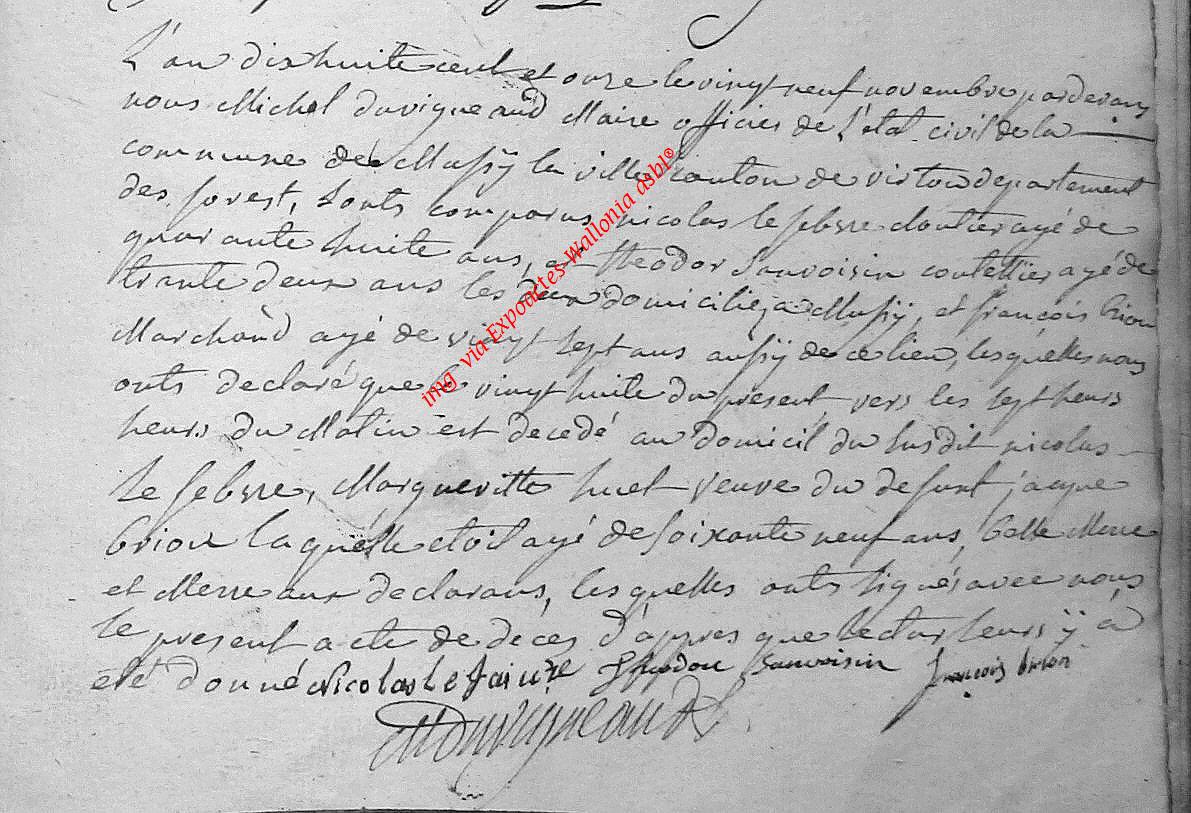 L'an dixhuite cent et onze le vingt neuf novembre pardevans
nous Michel Duvigneaud Maire officier de L'etat civil de la
commune de Mussÿ la ville canton de virton departement
des forest, sonts comparus nicolas le febvre cloutier agé de
quarante huite ans, et theodor Sauvoisin coutellier agé de
trante deux ans les deux domiciliez a Mussÿ, et françois brion
Marchand agé de vingt sept ans aussÿ de ce lieu, lesquelles nous
onts declaré que le vingt huite du present vers les sept heurs
heurs du Matin est decedé au domicil du susdit nicolas
Le febvre, Margueritte huet veuve du defunt jacque
brion laquelle etoit agé de soixante neuf ans, belle Merre
et Merre aux declarans, lesquelles onts signés avec nous
le present acte de deces d'appres que lectur leurs ÿ a
été donné Nicolas Le faivre Theodor Sauvoisin françois brion
MDuvigneaud
img via Expoactes-Wallonia asbl®